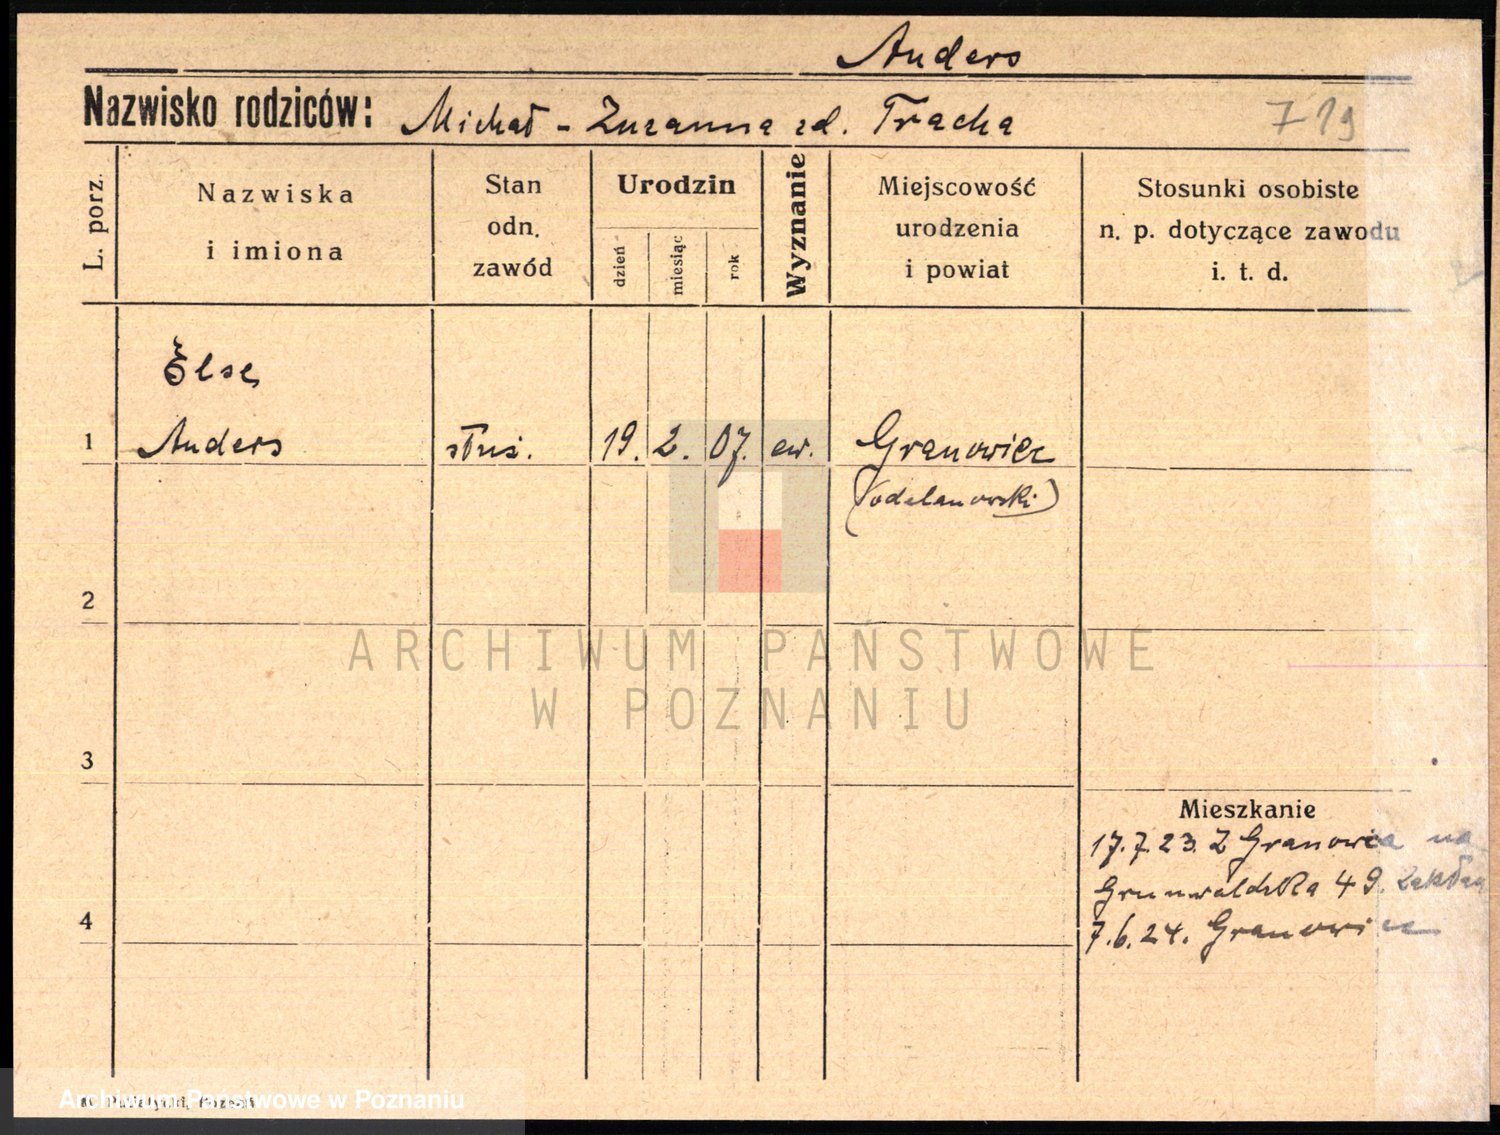 Anders
Nazwisko rodziców: Michał - Zuzanna zd. Tracha
719
L. porz.
Nazwiska
i imiona
Stan
odn.
zawód
Urodzin
dzień
miesiąc
rok
Wyznanie
Miejscowość
urodzenia
i powiat
Stosunki osobiste
n. p. dotyczące zawodu
i. t. d.
Else
1 Anders służ. 19. 2. 07. ew. Granowiec
(odolanowski)
2
ARCHIWUM PAŃSTWOWE
W POZNANIU
3
Mieszkanie
17.7.23. Z Granowca na
Grunwaldzka 49.
4
7.6.24. Granowiec
Archiwum Państwowe w Poznaniu